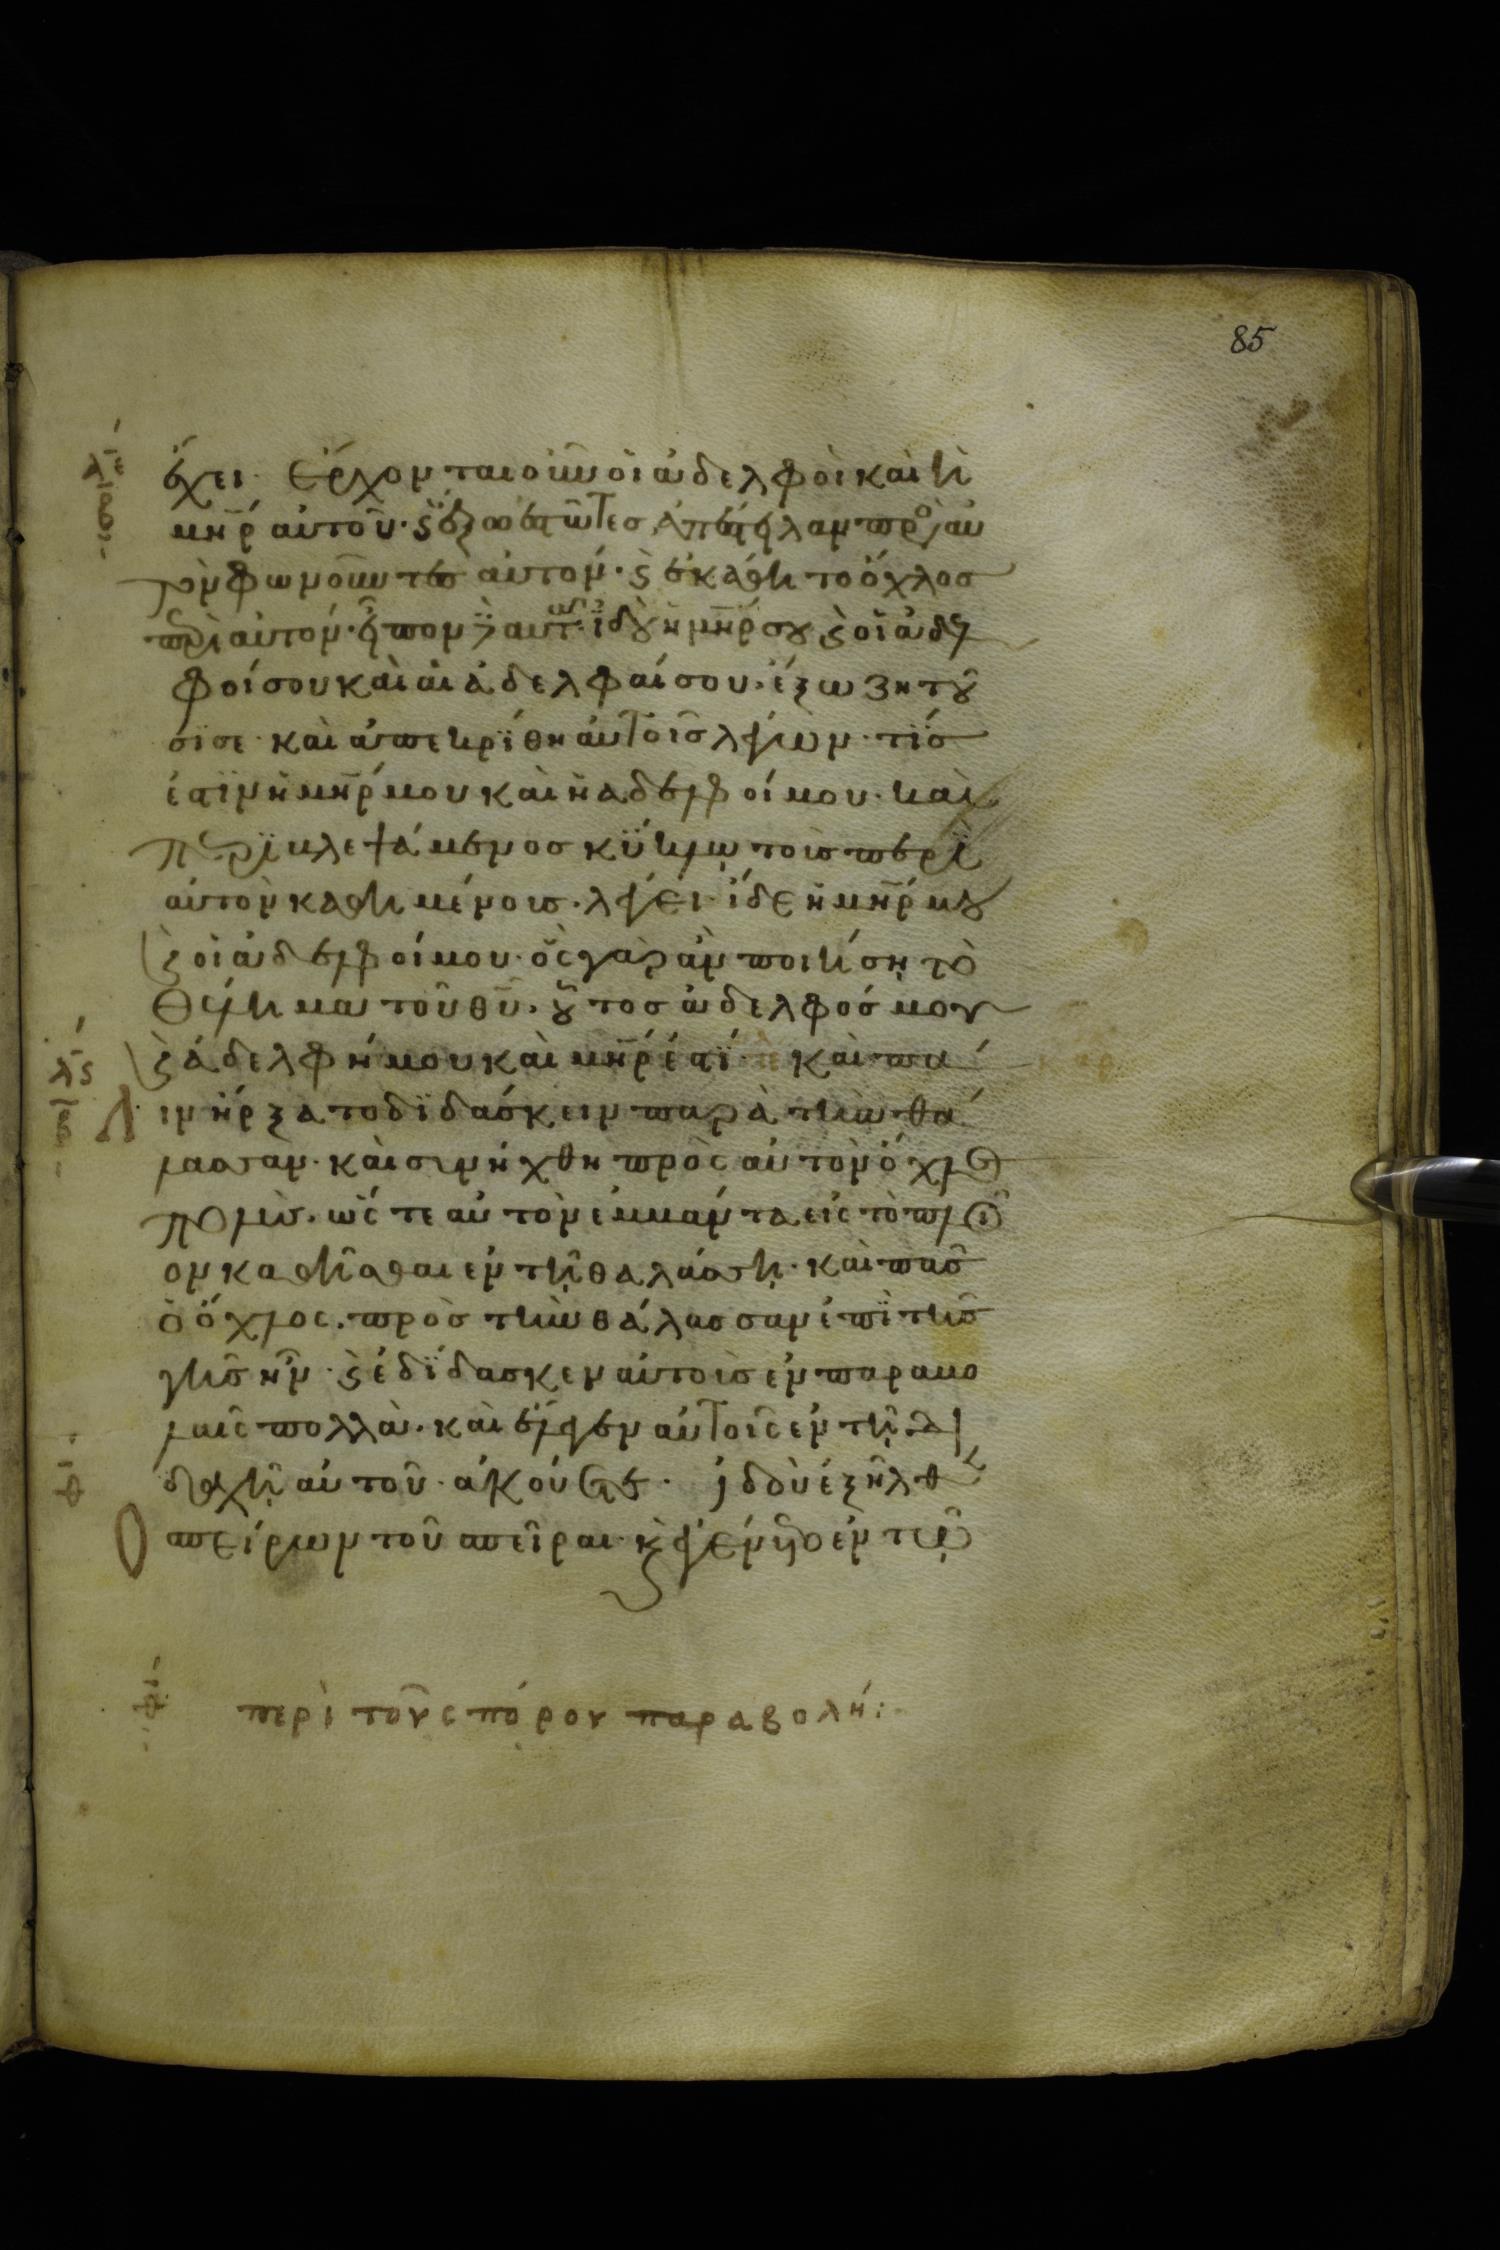 85
ἔχει· Ἔρχονται οὖν οἱ ἀδελφοὶ καὶ ἡ
μη̅ρ αὐτοῦ· ϛ ἔξω ἑστῶτες ἀπέστειλαν πρὸς αὐ
τὸν φωνοῦντες αὐτόν· ϛ ἐκάθητο ὄχλος
περὶ αὐτόν· εἶπον δὲ αὐτῶ· ἰδοὺ ἡ μη̅ρ σου ϛ οἱ ἀδελ
φοί σου καὶ αἱ ἀδελφαί σου· ἔξω ζητοῦ
σί σε· καὶ ἀπεκρίθη αὐτοῖς λέγων· τίς
ἐστὶν ἡ μη̅ρ μου καὶ ἢ ἀδελφοί μου· καὶ
περϊβλεψάμενος κύκλω τοὺς περὶ
αὐτὸν καθημένους· λέγει· ἴδε ἡ μη̅ρ μου
ϛ οἱ ἀδελφοί μου· ὃς γὰρ ἂν ποιήση τὸ
θέλημα τοῦ θυ̅· οὗτος ἀδελφός μου
ϛ ἀδελφή μου καὶ μη̅ρ ἐστί· καὶ πά
λιν ἤρξατο διδάσκειν παρὰ τὴν θά
λασσαν· καὶ συνήχθη πρὸς αὐτὸν ὄχλος
πολὺς· ὥστε αὐτὸν ἐμβάντα εἰς τὸ πλοῖ
ον καθῆσθαι ἐν τῆ θαλάσση· καὶ πᾶς
ὁ ὄχλος· πρὸς τὴν θάλασσαν ἐπὶ τῆς
γῆς ἦν· ϛ ἐδίδασκεν αὐτοὺς ἐν παραβο
λαῖς πολλὰ· καὶ ἔλεγεν αὐτοῖς ἐν τῆ δι
δαχῆ αὐτοῦ· ἀκούετε· ἰδοὺ ἐξῆλθεν
σπείρων τοῦ σπεῖραι· κ̀ ἐγένετο ἐν τῶ
περὶ τοῦ σπόρου παραβολή: